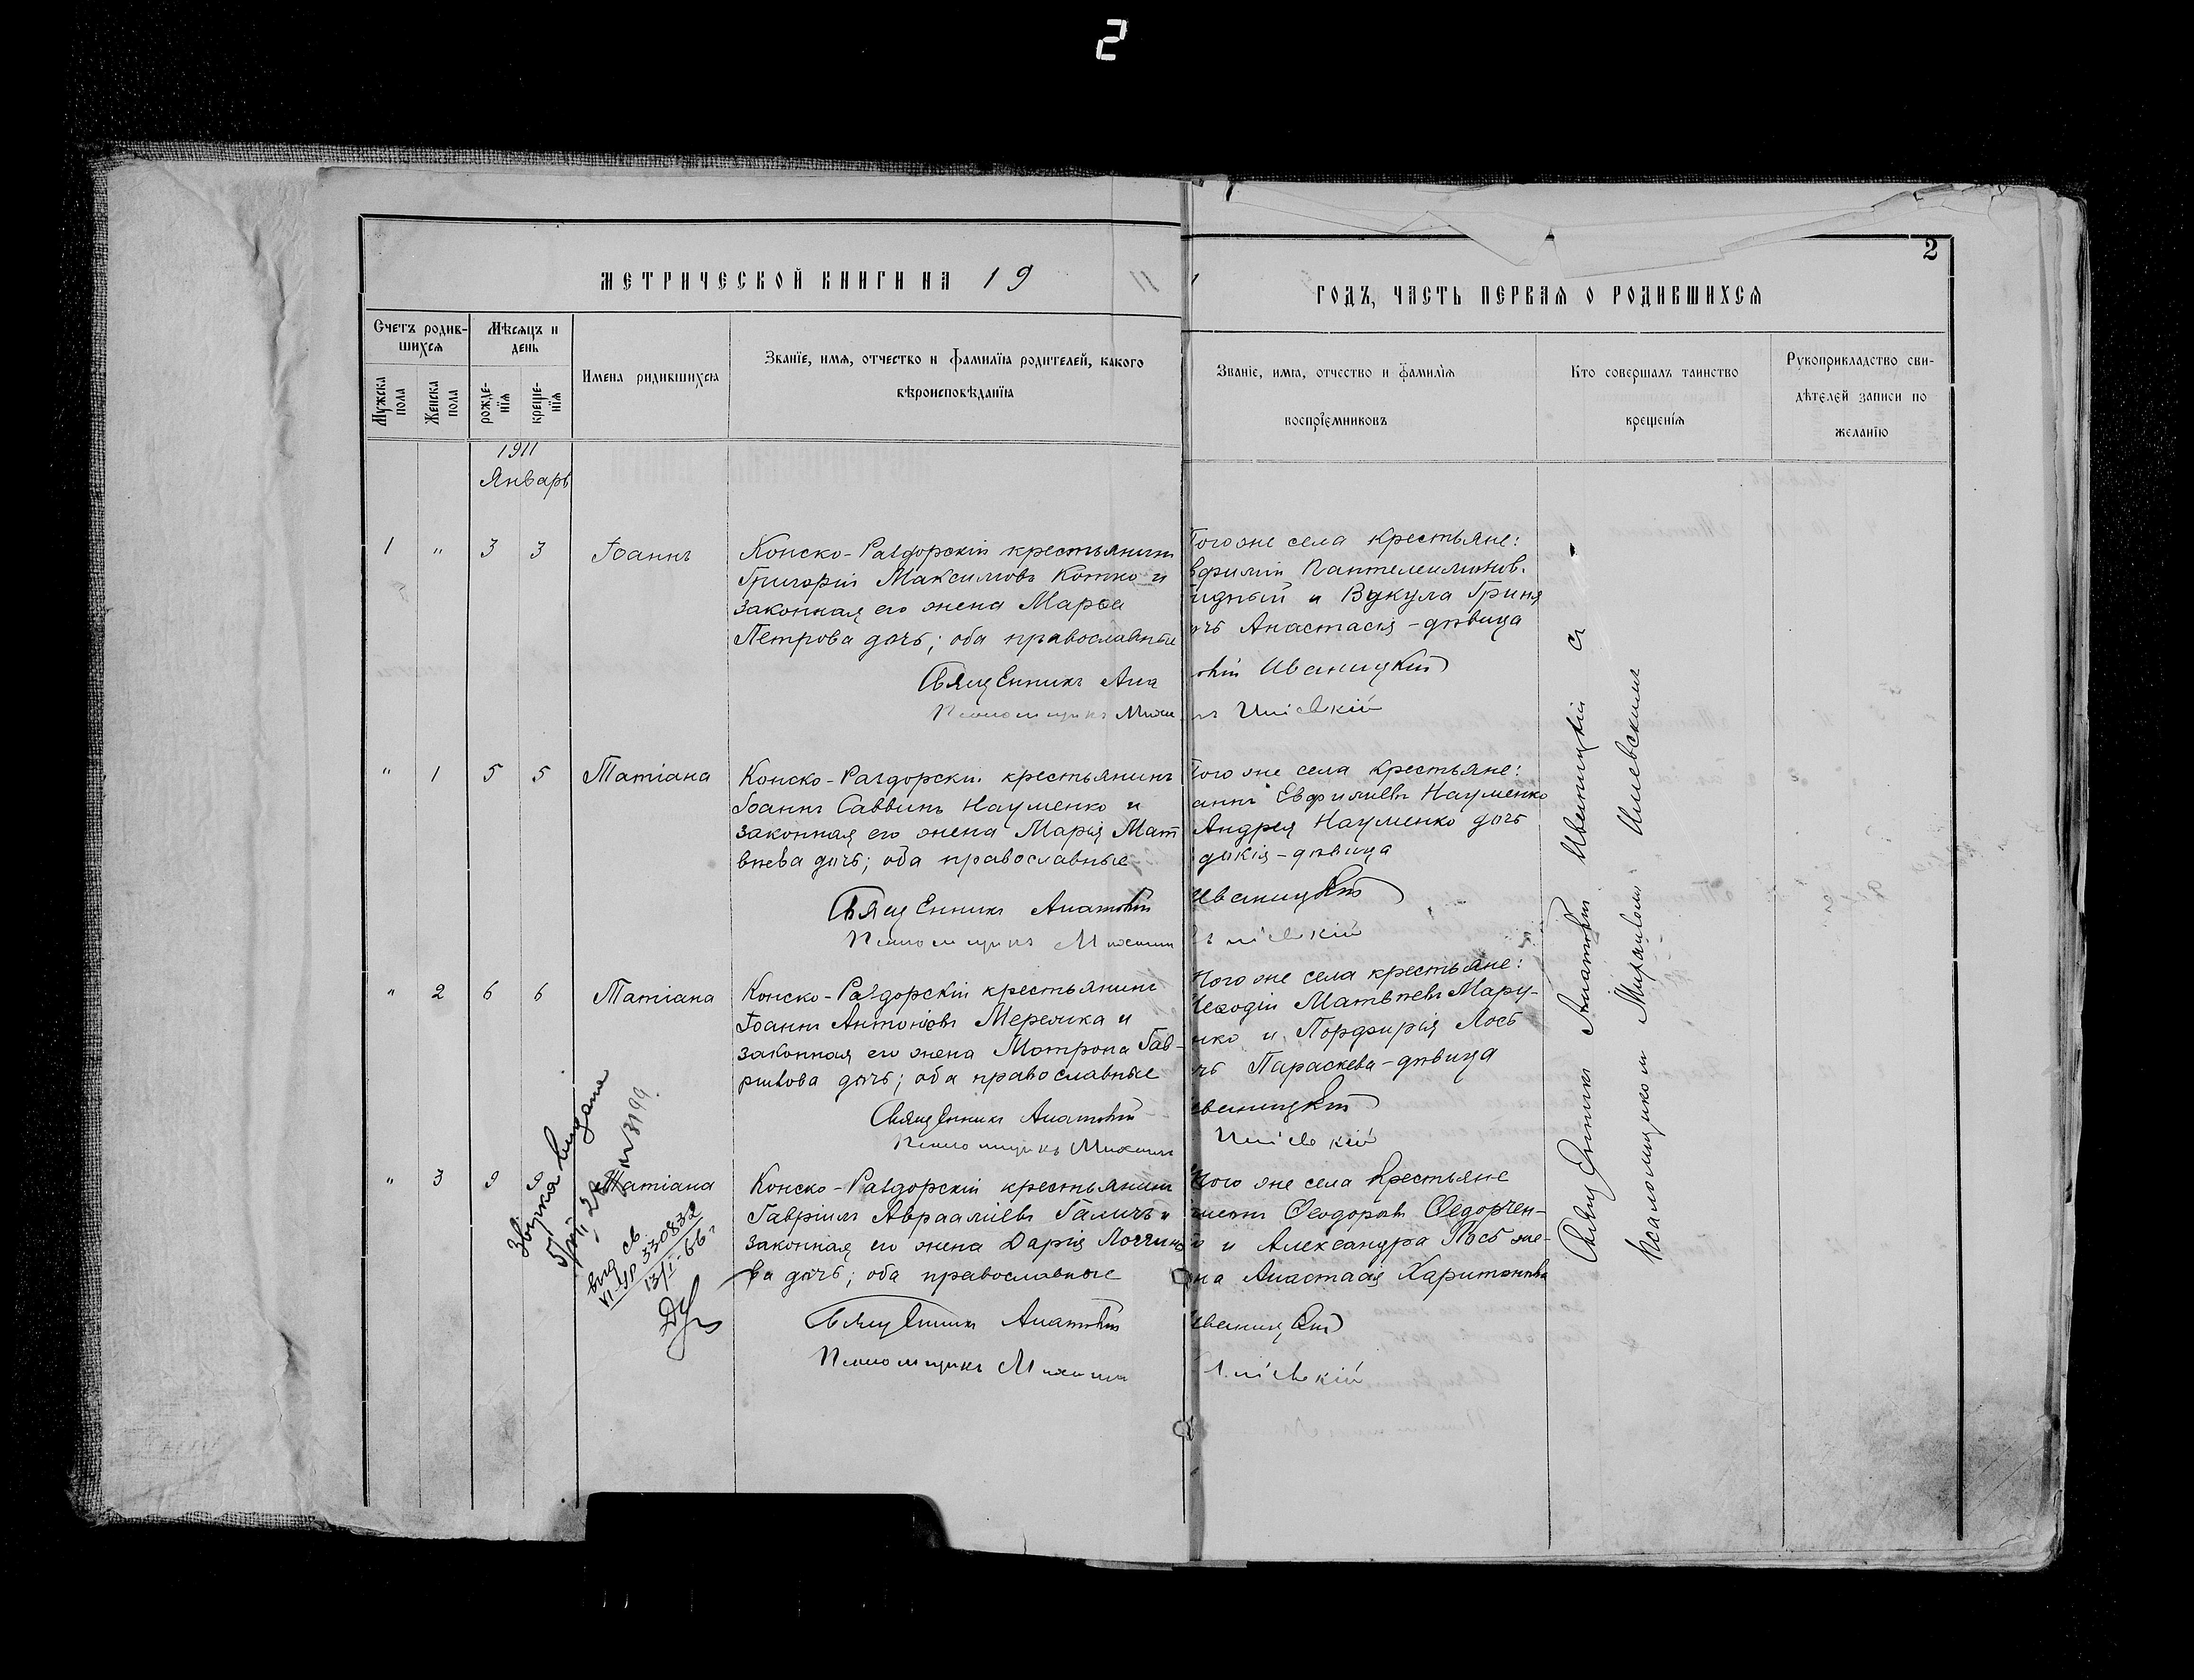 2
2
МЕТРИЧЕСКОЙ КНИГИ НА 1911
ГОДЪ, ЧАСТЬ ПЕРВАЯ О РОДИВШИХСЯ
Счетъ родив-
шихся
Мѣсяцъ и
день
Мужска
пола
Женска
пола
рожде-
нія
креще-
нія
Имена родившихся
Званїе, имя, отчество и фамилїя родителей, какого
вѣроисповѣданїя
Званїе, имя, отчество и фамилїя
воспрїемниковъ
Кто совершалъ таинство
крещенїя
Рукоприкладство сви-
дѣтелей записи по
желанїю
1911
Январь
1 " 3 3 Іоаннъ
Конско-Раздорскій крестьянинъ
Григорій Максимовъ Котко и
законная его жена Марѳа
Петрова дочь; оба православные
Того же села крестьяне:
вфимій Пантелеимонов.
идный и Вукула Гриня
очь Анастасія - дѣвица
Священникъ Ана
олій Иваницкій
Псаломщикъ Миха
лъ Иліевкій
" 1 5 5 Татіана
Конско-Раздорскій крестьянинъ
Іоаннъ Саввинъ Науменко и
законная его жена Марія Мат
вѣева дочь; оба православные
Того же села крестьяне:
аннъ Евфиміевъ Науменко
Андрея Науменко дочь
докія - дѣвица
Священникъ Анатолій
Иваницкій
Псаломщикъ Михаилъ
Иліевкій
" 2 6 6 Татіана
Конско-Раздорскій крестьянинъ
Іоаннъ Антоновъ Мережка и
законная его жена Матрона Гав-
рилова дочь; оба православные
Того же села крестьяне:
Меѳодій Матвѣевъ Мару-
нко и Порфирія Лось
чь Параскева - дѣвица
Священникъ Анатолій
Иваницкій
Псаломщикъ Михаилъ
Иліевкій
" 3 9 9 Татіана
Конско-Раздорскій крестьянинъ
Гавріилъ Авраамиевъ Галичъ и
законная его жена Дарія Логгино
ва дочь; оба православные
Того же села крестьяне
Ѳеодоровъ Ѳедорчен-
о и Александра Лось же-
на Анастасія Харитонова
Священникъ Анатолій
Иваницкій
Псаломщикъ Михаилъ
Иліевкій
Священникъ Анатолій Иваницкій съ
псаломщикомъ Михаиломъ Илиевскимъ
видана
№ 3199
вид св
VI-ЯР 330832
13/I-66г